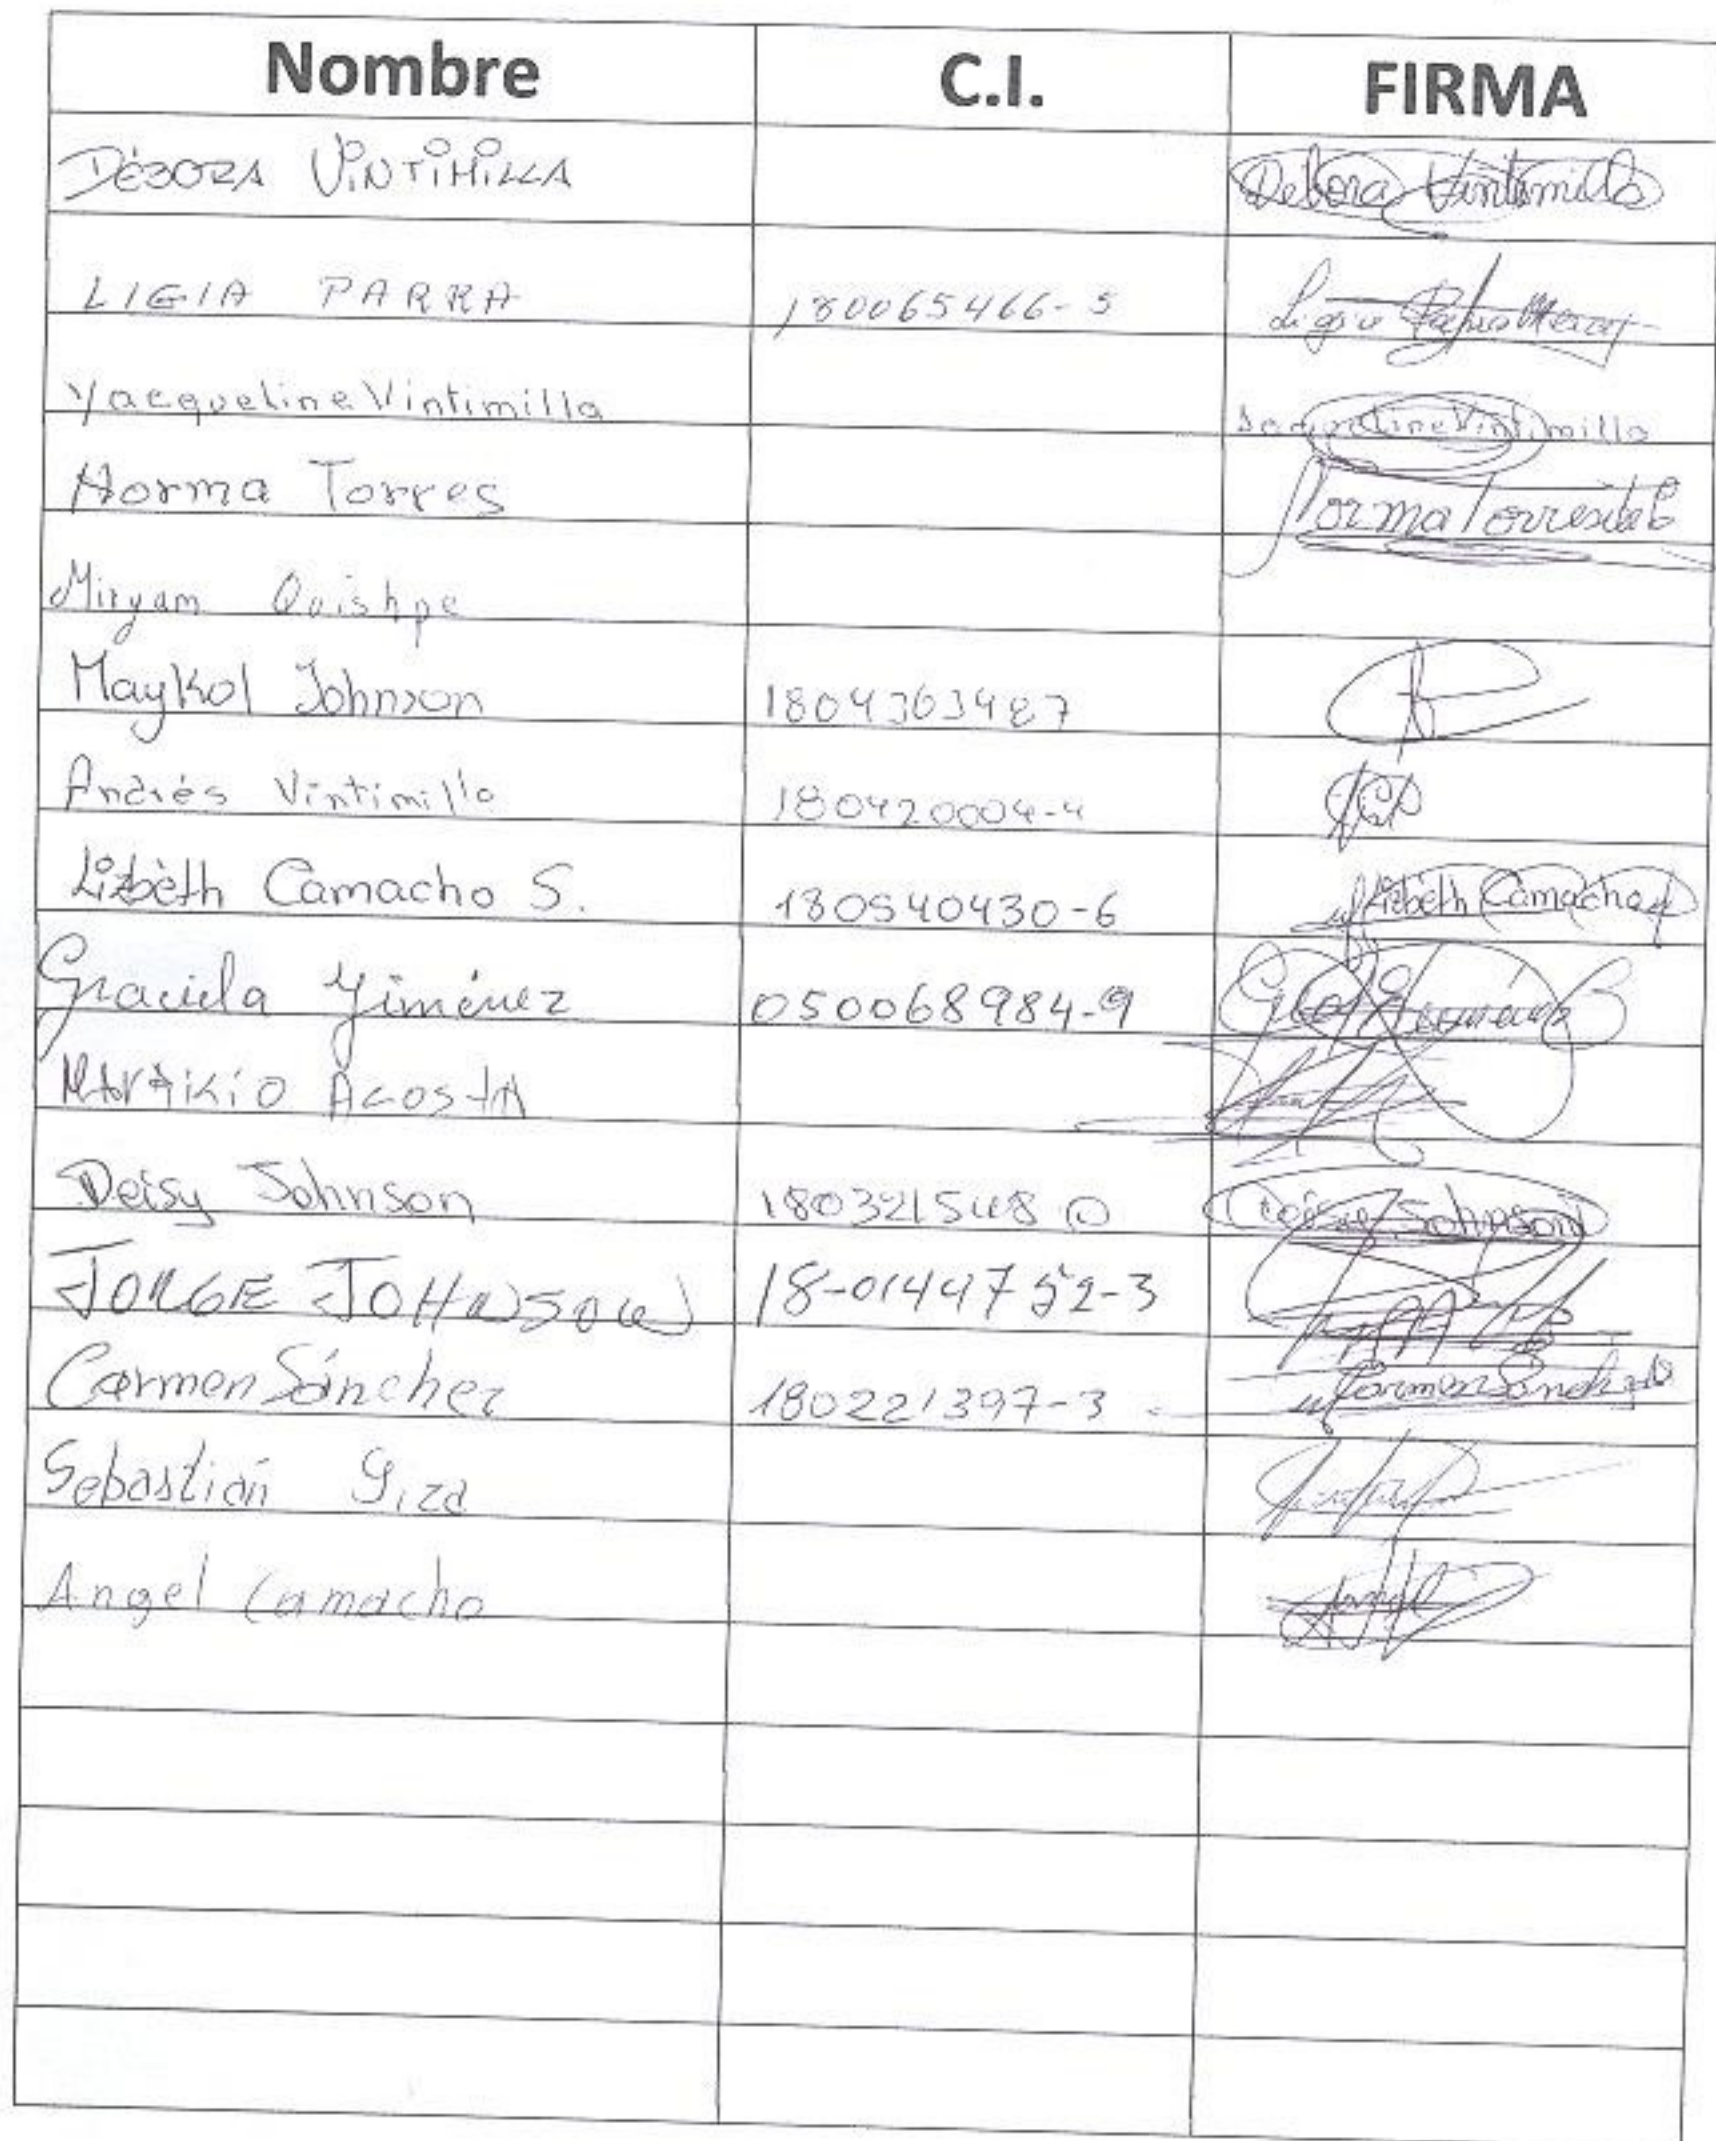 Nombre C.I. FIRMA
DÉBORA VINTIMILLA Debora Vintimilla
LIGIA PARRA 180065466-5 Ligia Parra
Yacqueline Vintimilla Vintimilla
Norma Torres Norma Torres
Miryam Quishpe
Maykol Johnson 1804363487
Andrés Vintimilla 180420004-4
Lizbeth Camacho S. 180540430-6 Lizbeth Camacho
Graciela Jiménez 050068984-9
ACOSTA
Deisy Johnson 180321548 0 Deisy Johnson
JORGE JOHNSON 18-0144752-3
Carmen Sánchez 180221397-3 Carmen Sánchez
Sebastián
Angel Camacho Angel